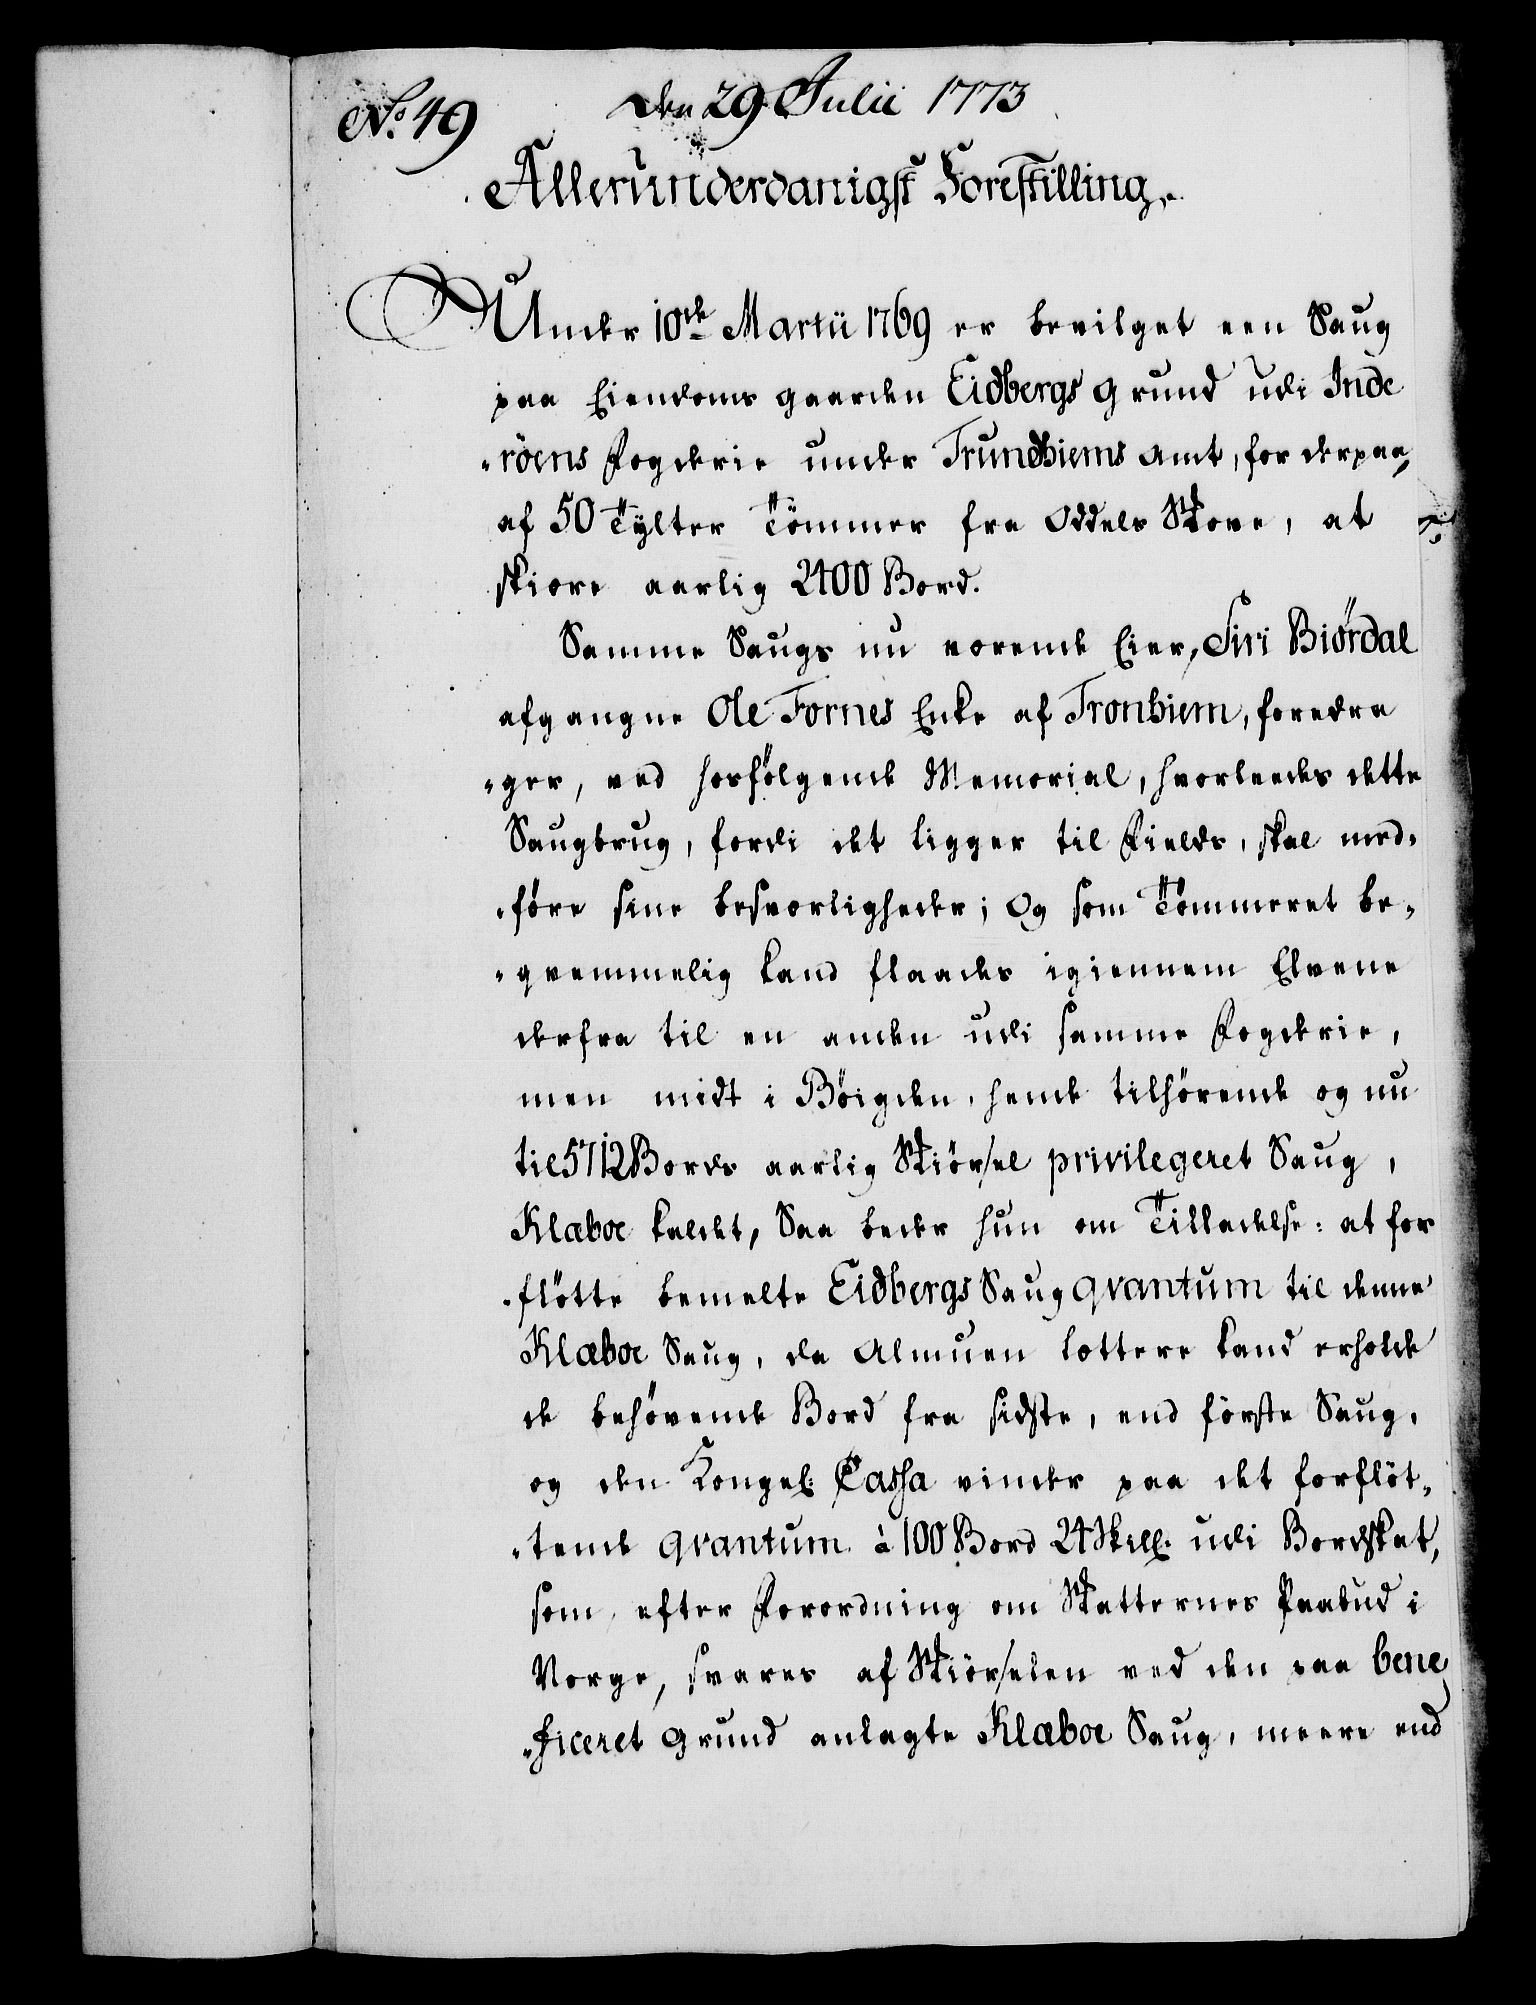 No. 49
den 29 Julii 1773
Allerunderdanigst Forestilling.
Under 10de Martii 1769 er bevilget een Saug
paa Eiendoms gaarden Eidbergs grund udi Inde
"röens Fogderie under Trundhiems Amt, for derpaa,
af 50 Tylter Tömmer fra Oddels Skove, at
skiære aarlig 2400 Bord.
Samme Saugs nu værende Eier, Siri Biördal
afgangne Ole Fornes Enke af Tronhiem, foredra
"ger, ved hosfölgende Memorial, hvorledes dette
Saugbrug, fordi det ligger til Fields, skal med"
"före sine besværligheder; Og som Tömmeret be"
"qvemmelig kand flaades igiennem Elvene
derfra til en anden udi samme Fogderie,
men midt i Böigden, hende tilhörende og nu
til 5712 Bords aarlig Skiörsel privilegeret Saug,
Klæboe kaldet, Saa beder hun om Tilladelse: at for
"flötte bemelte Eidbergs Saug qvantum til denne
Klæboe Saug, da Almuen lættere kand erholde
de behövende Bord fra sidste, end förste Saug,
og den Kongel: Cassa vinder paa det forflöt"
"tende qvantum à 100 Bord 24 Skill: udi Bordskat,
som, efter Forordning om Skatternes Paabud i
Norge, svares af Skiörselen ved den paa bene
"ficeret Grund anlagte Klæboe Saug, meere end